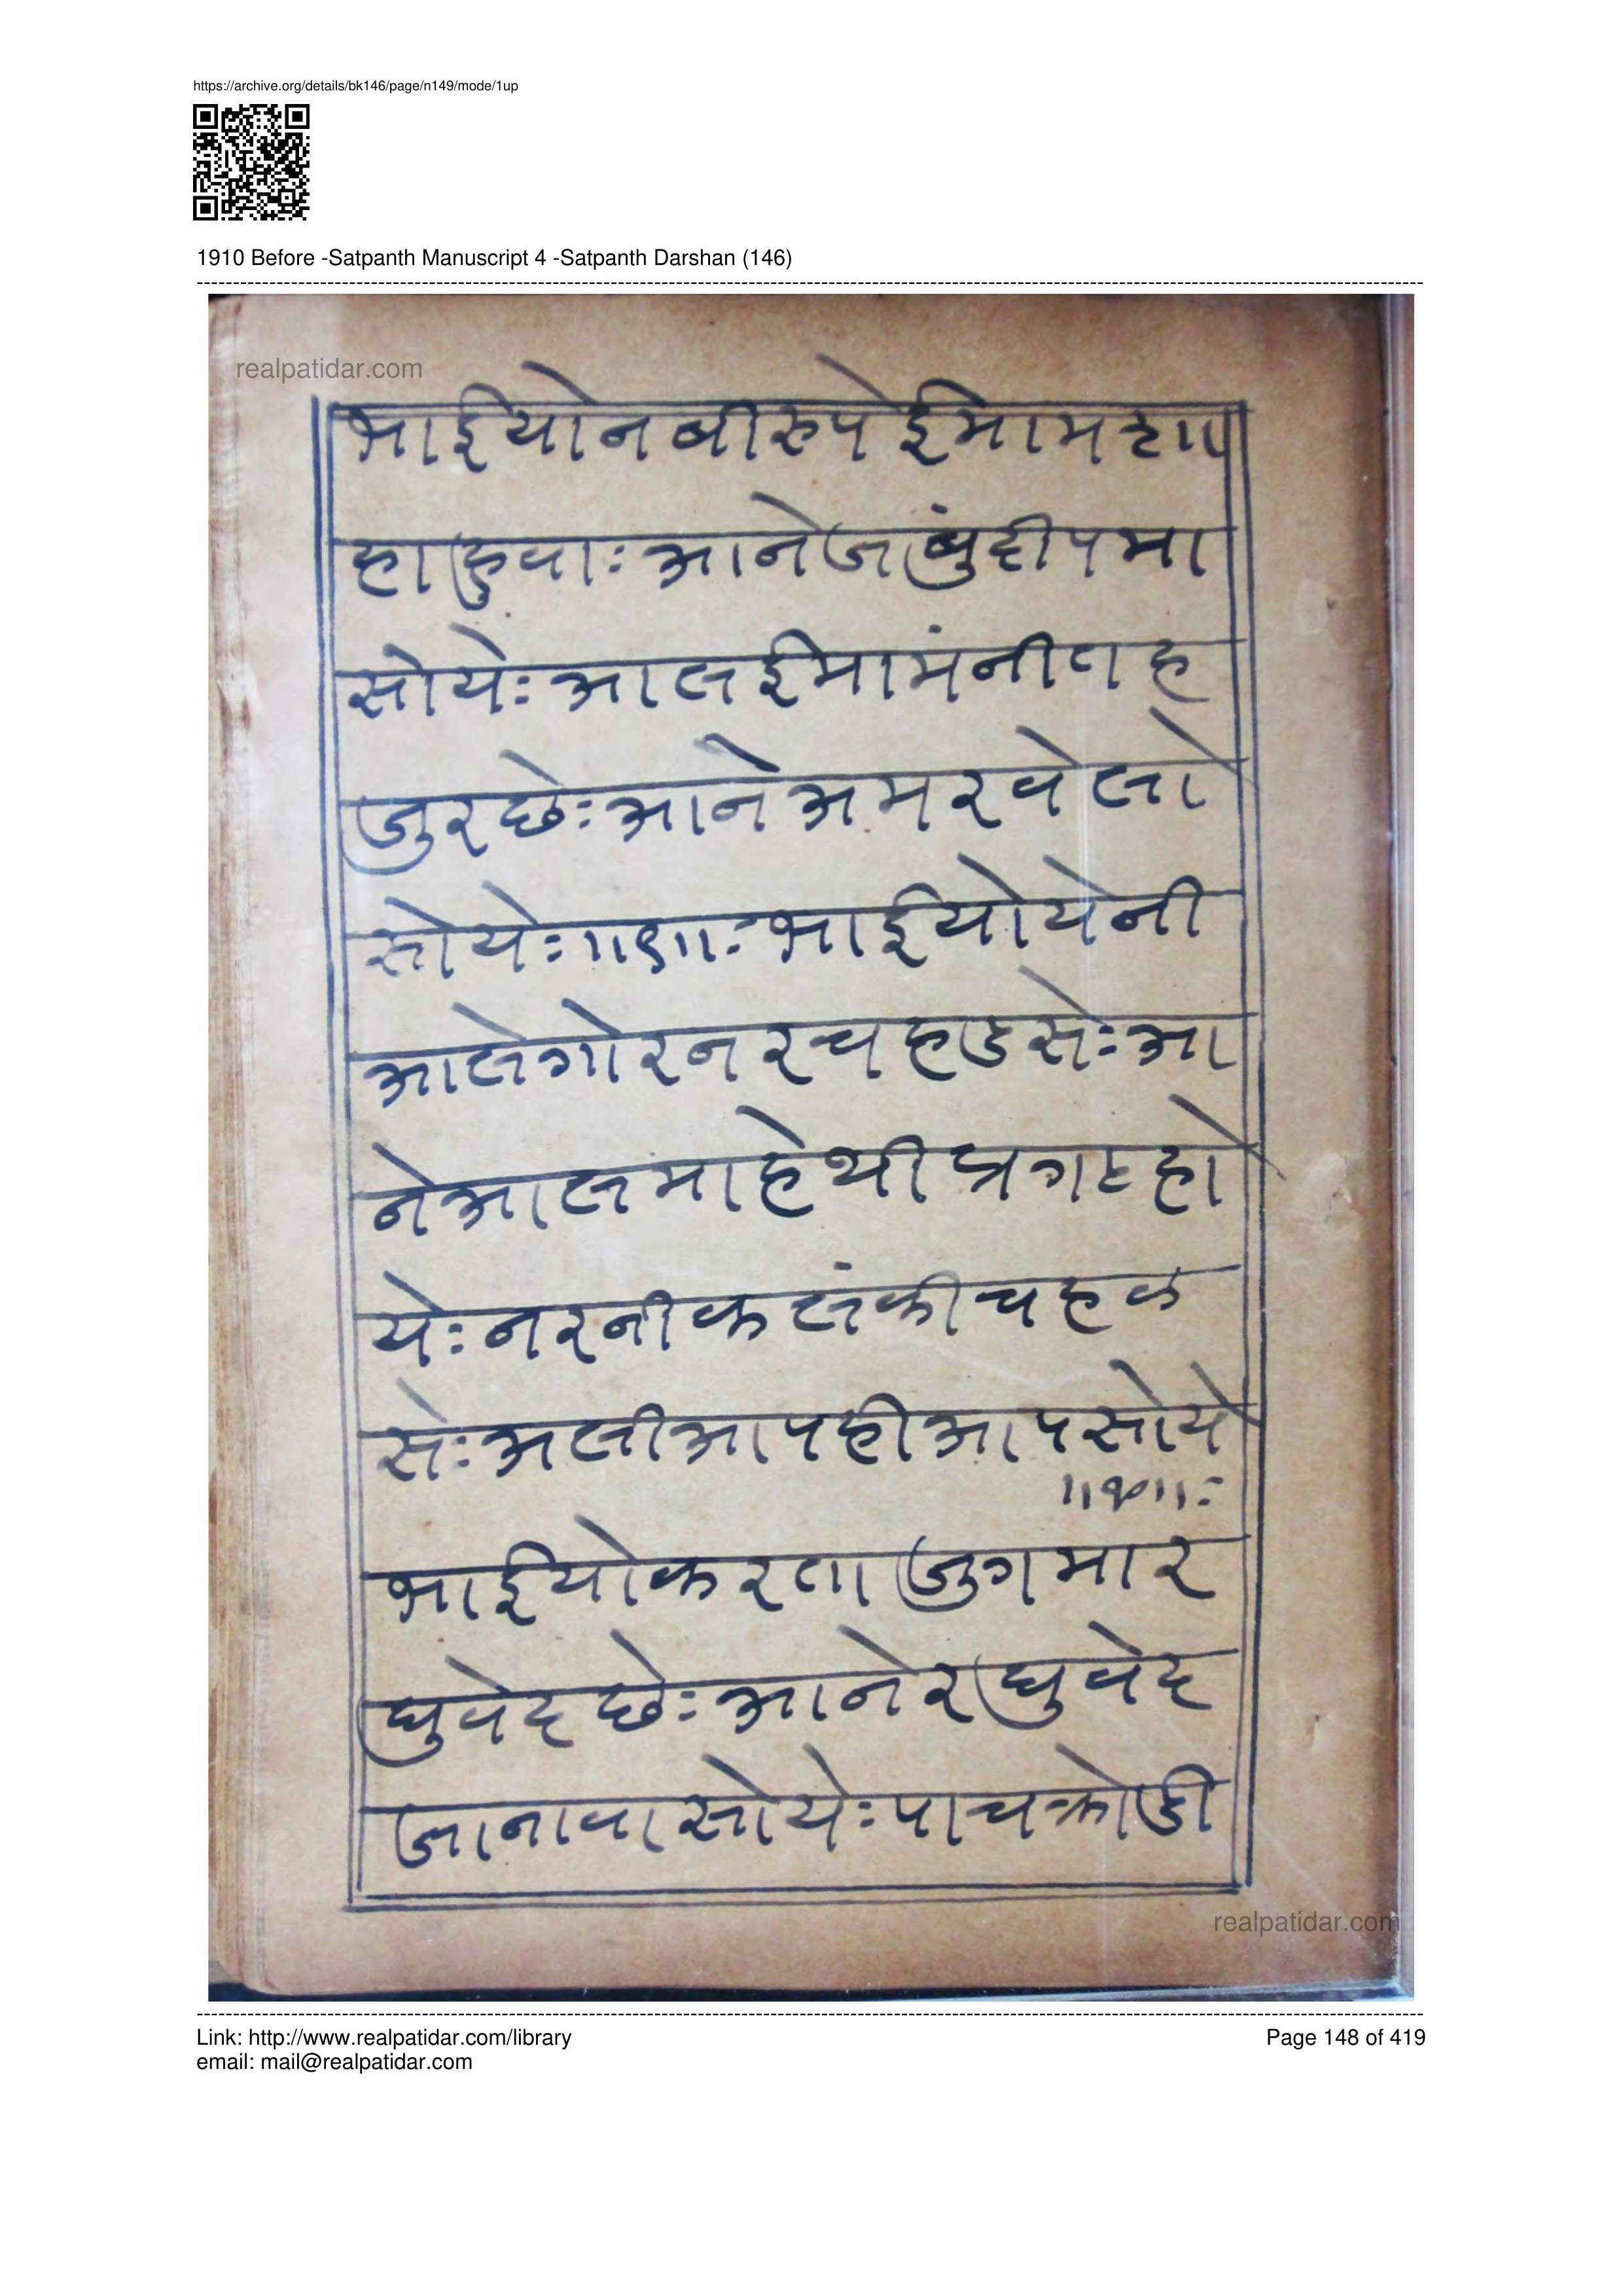 https://archive.org/details/bk146/page/n149/mode/1up
1910 Before -Satpanth Manuscript 4 -Satpanth Darshan (146)
realpatidar.com
भाईयोनबीरुपेईमामशा
हाहुवाः आनेजांबुंदीपमा
सोयेः आलईमामंनीतह
जुरछेः आनेअमरवेलो
सोयेः ॥९॥ः भाईयोयेनी
आलेगोरनरचहडसेः आ
नेआलमाहेथीप्रगटहो
येः नरनीकलंकीचहळ
सेः अलीआपहीआपसोये
॥१०॥ः
भाईयोकरताजुगमार
घुवेदछेः आनेरघुवेद
जानावासोयेः पाचक्रोडी
realpatidar.com
Link: http://www.realpatidar.com/library
Page 148 of 419
email: mail@realpatidar.com